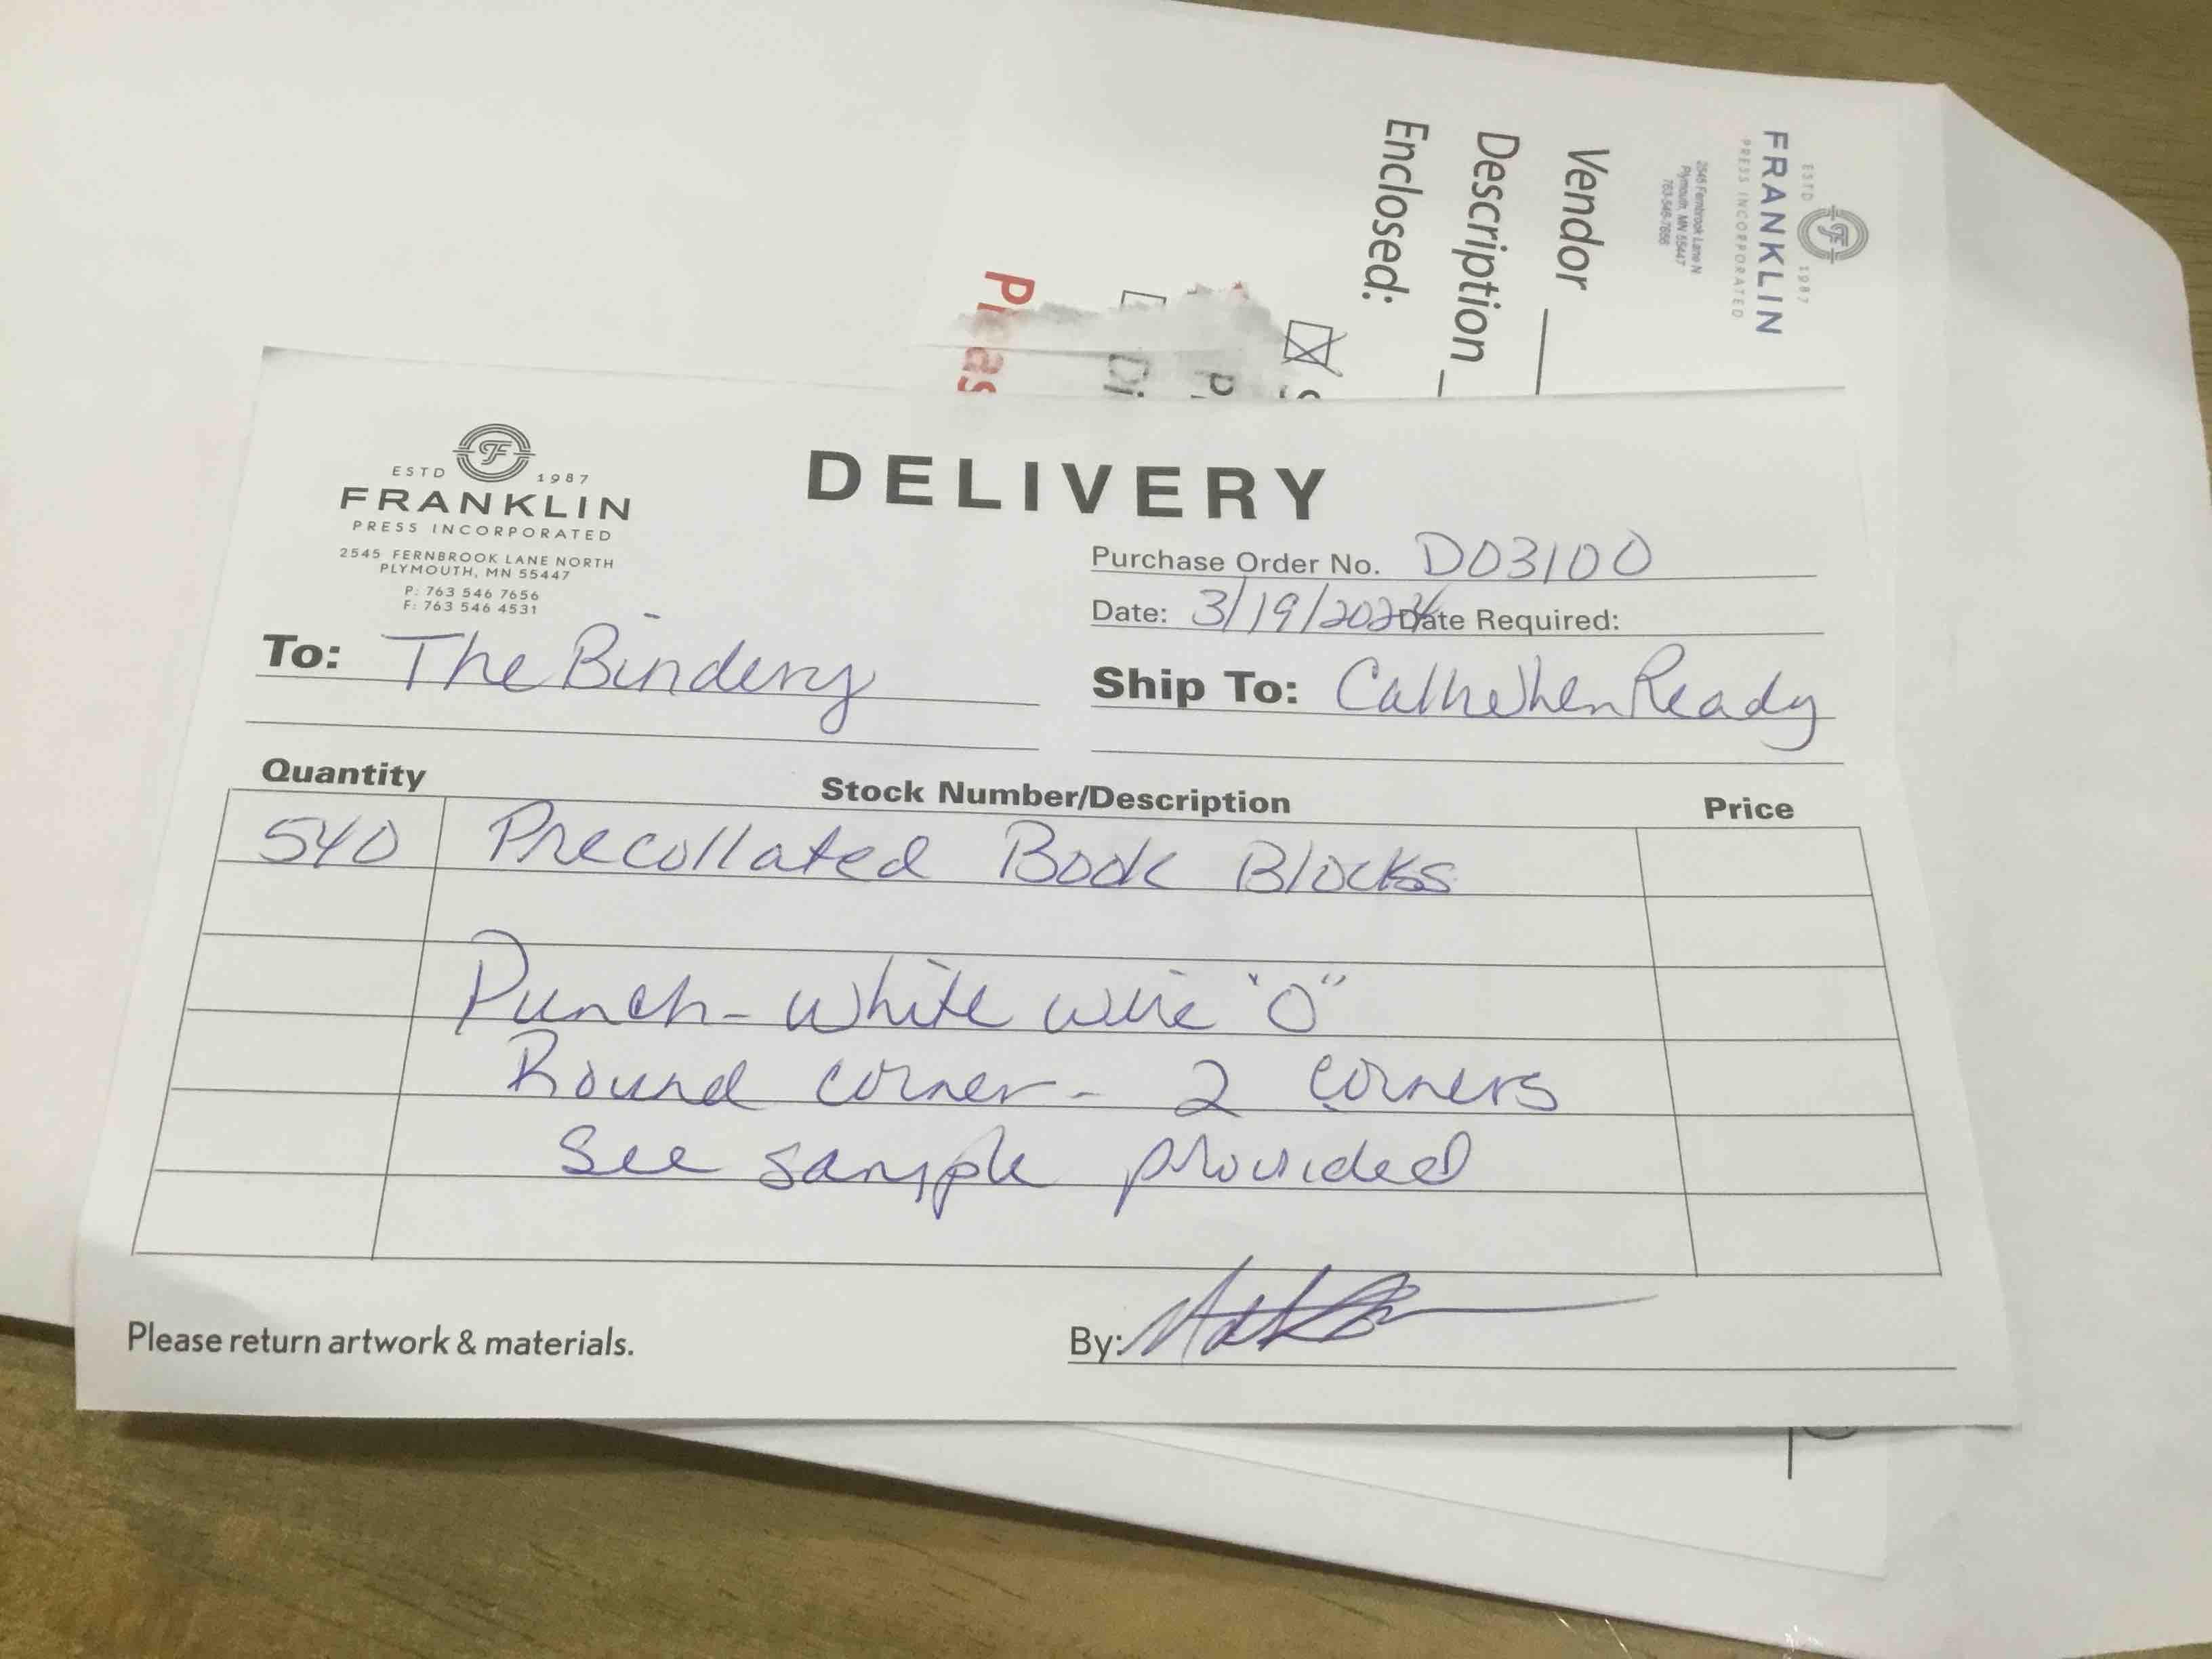 ESTD 1987
FRANKLIN
PRESS INCORPORATED
2545 Fernbrook Lane N
Plymouth, MN 55447
763-546-7656
Vendor
Description
Enclosed:
ESTD 1987
FRANKLIN
PRESS INCORPORATED
2545 FERNBROOK LANE NORTH
PLYMOUTH, MN 55447
P: 763 546 7656
F: 763 546 4531
DELIVERY
Purchase Order No. D03100
Date: 3/19/2024 Date Required:
To: The Bindery
Ship To: Call When Ready
Quantity Stock Number/Description Price
540 Precollated Book Blocks
Punch - white wire "O"
Round corner - 2 corners
See sample provided
Please return artwork & materials.
By: